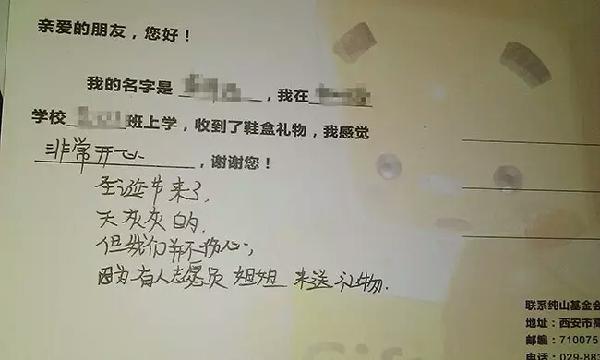 亲爱的朋友，您好！
我的名字是，我在
学校班上学，收到了鞋盒礼物，我感觉
非常开心，谢谢您！
圣诞节来了，
天灰灰白的，
但我们并不伤心，
因为有人志愿员姐姐来送礼物.
联系纯山基金会
地址：西安市高
邮编：710075
电话：029-88